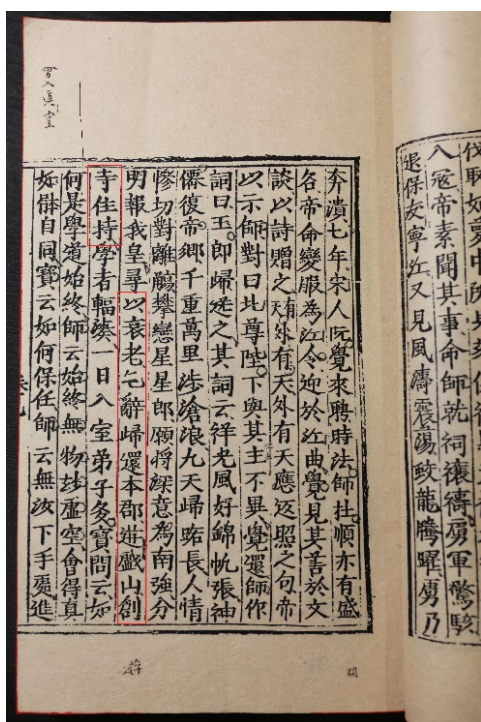 入冦帝素聞其事命師就祠禳禱虜軍驚駭
退保友寧江又見風濤震蕩蛟龍騰躍虜乃
奔潰七年宋人阮覺來聘時法師杜順亦有盛
名帝命變服為江令迎於江曲覺見其善於文
談以詩贈之有天外有天應返照之句帝
以示師對曰此尊陛下與其主不異覺還師作
詞曰玉郎歸送之其詞云祥光風好錦帆張神
僊復帝鄉千重萬里涉滄浪九天歸路長人情
慘切對離觴攀戀星星郎願將深意為南強分
明報我皇尋以衰老乞辭歸還本郡遊戲山創
寺住持學者輻湊一日入室弟子多寶問云如
何是學道始終師云始終無物玅虛空會得真
如體自同寶云如何保任師云無汝下手處進